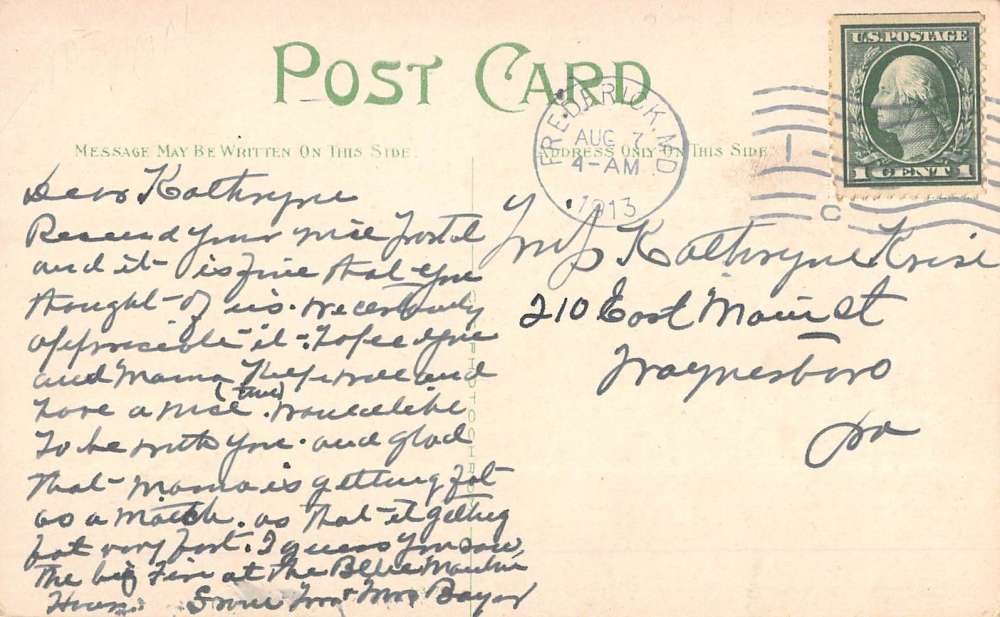 POST CARD
MESSAGE MAY BE WRITTEN ON THIS SIDE.
ADDRESS ONLY ON THIS SIDE
U.S. POSTAGE
1 CENT 1
FREDERICK. MD
AUG 7
4-AM
1913
1
C
Dear Kathryne
Received your nice postal
and it is fine that you
thought of us. We certainly
it. Hope you
and Mama keep well and
have a nice (time) would like
to be with you. and glad
that Mama is getting fat
as a match. as that it getting
fat very fast. I guess you saw
the big Fire at the Blue Mountin
House. From Mr & Mrs
Kathryne Krise
210 East Main St
Waynesboro
Pa
PHOTOCHROM